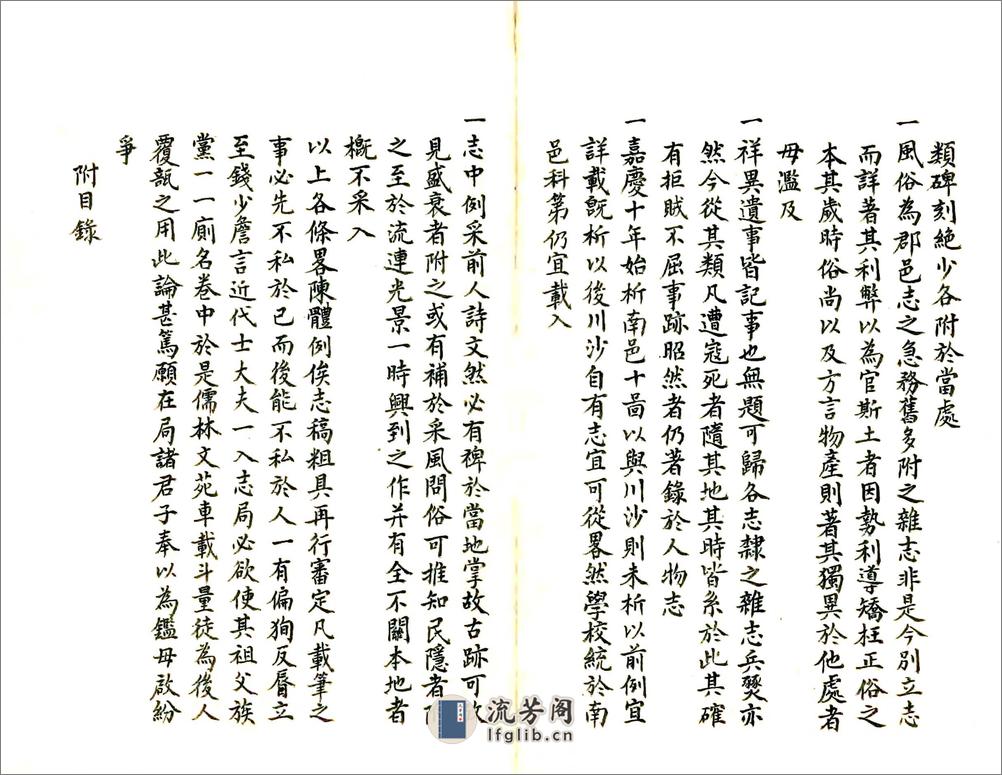 類碑刻絶少各附於當處
一風俗為郡邑志之急務舊多附之雜志非是今別立志
而詳著其利弊以為官斯土者因勢利導矯枉正俗之
本其歲時俗尚以及方言物產則著其獨異於他處者
毋濫及
一祥異遺事皆記事也無題可歸各志隸之雜志兵燹亦
然今從其類凡遭寇死者隨其地其時皆系於此其確
有拒賊不屈事跡昭然者仍著錄於人物志
一嘉慶十年始析南邑十啚以與川沙則未析以前例宜
詳載旣析以後川沙自有志宜可從畧然學校統於南
邑科第仍宜載入
一志中例采前人詩文然必有裨於當地掌故古跡可
見盛衰者附之或有補於采風問俗可推知民隱者
之至於流連光景一時興到之作并有全不關本地者
概不采入
以上各條畧陳體例俟志稿粗具再行審定凡載筆之
事必先不私於己而後能不私於人一有偏狥反脣立
至錢少詹言近代士大夫一入志局必欲使其祖父族
黨一一廁名卷中於是儒林文苑車載斗量徒為後人
覆瓿之用此論甚篤願在局諸君子奉以為鑑毋啟紛
爭
附目錄
流芳阁
lfglib.cn